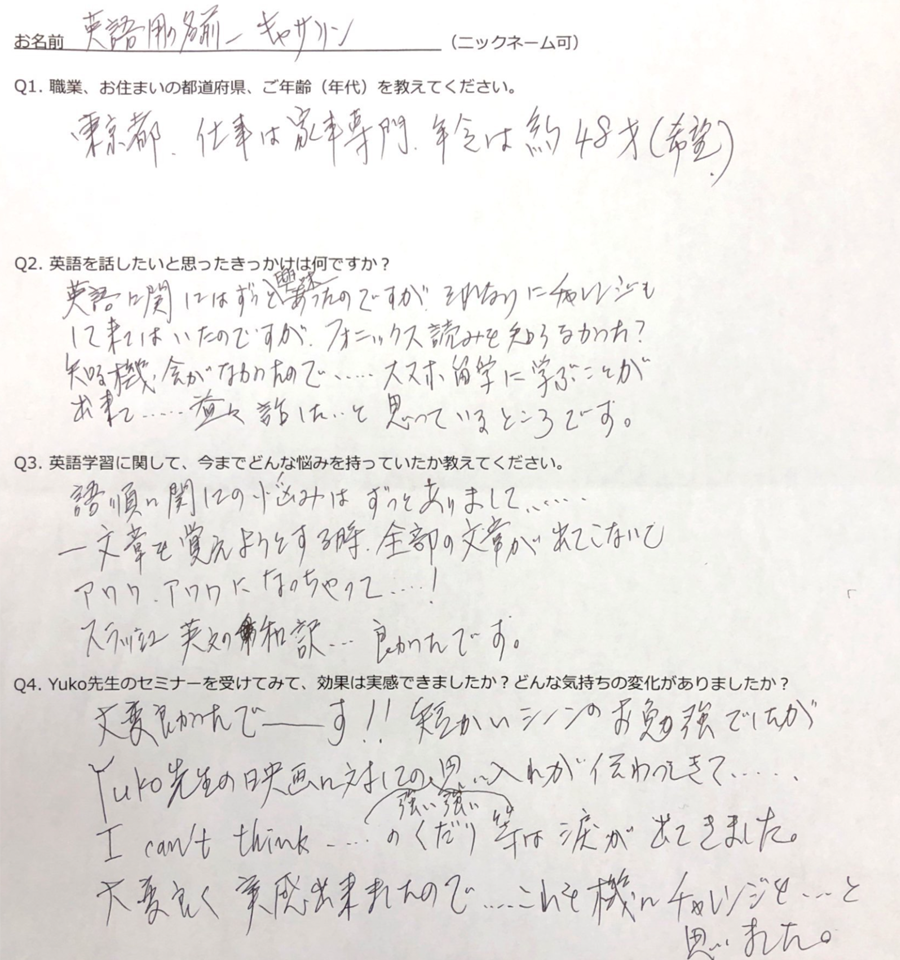 お名前 英語用の名前_ キャサリン (ニックネーム可)
Q1. 職業、お住まいの都道府県、ご年齢(年代)を教えてください。
東京都、仕事は家事専門、年令は約48才(希望)
Q2. 英語を話したいと思ったきっかけは何ですか?
英語に関してはずっと興味あったのですが、それなりにチャレンジも
して来てはいたのですが、フォニックス読みを知らなかった?
知る機会がなかったので……スマホ留学に学ぶことが
出来て……益々話したいと思っているところです。
Q3. 英語学習に関して、今までどんな悩みを持っていたか教えてください。
語順に関しての悩みはずっとありまして……
一文章を覚えようとする時、全部の文章が出てこないで
アワワ、アワワになっちゃって……!
スラッシュ英文の和訳…良かったです。
Q4. Yuko先生のセミナーを受けてみて、効果は実感できましたか?どんな気持ちの変化がありましたか?
大変良かったで――す!! 短かいシーンのお勉強でしたが
Yuko先生の映画に対しての強い強い思い入れが伝わってきて……
I can't think ……のくだり等は涙が出てきました。
大変良く実感出来ましたので……これを機にチャレンジを…と
思いました。